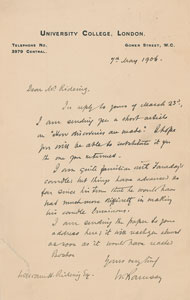 UNIVERSITY COLLEGE, LONDON.
TELEPHONE NO. GOWER STREET, W.C.
5979 CENTRAL.
7th May 1906.
Dear Mr Kidering,
In reply to yours of March 23rd,
I am sending you a short article
on "How discoveries are made". I hope
you will be able to substitute it for
the one you returned.
I am quite familiar with Faraday's
but things have advanced so
far since his time that he would have
had much more difficulty in making
his
I am sending the paper to your
address here; it will
as soon as it would have reached
Boston
Yours very truly
W Ramsay